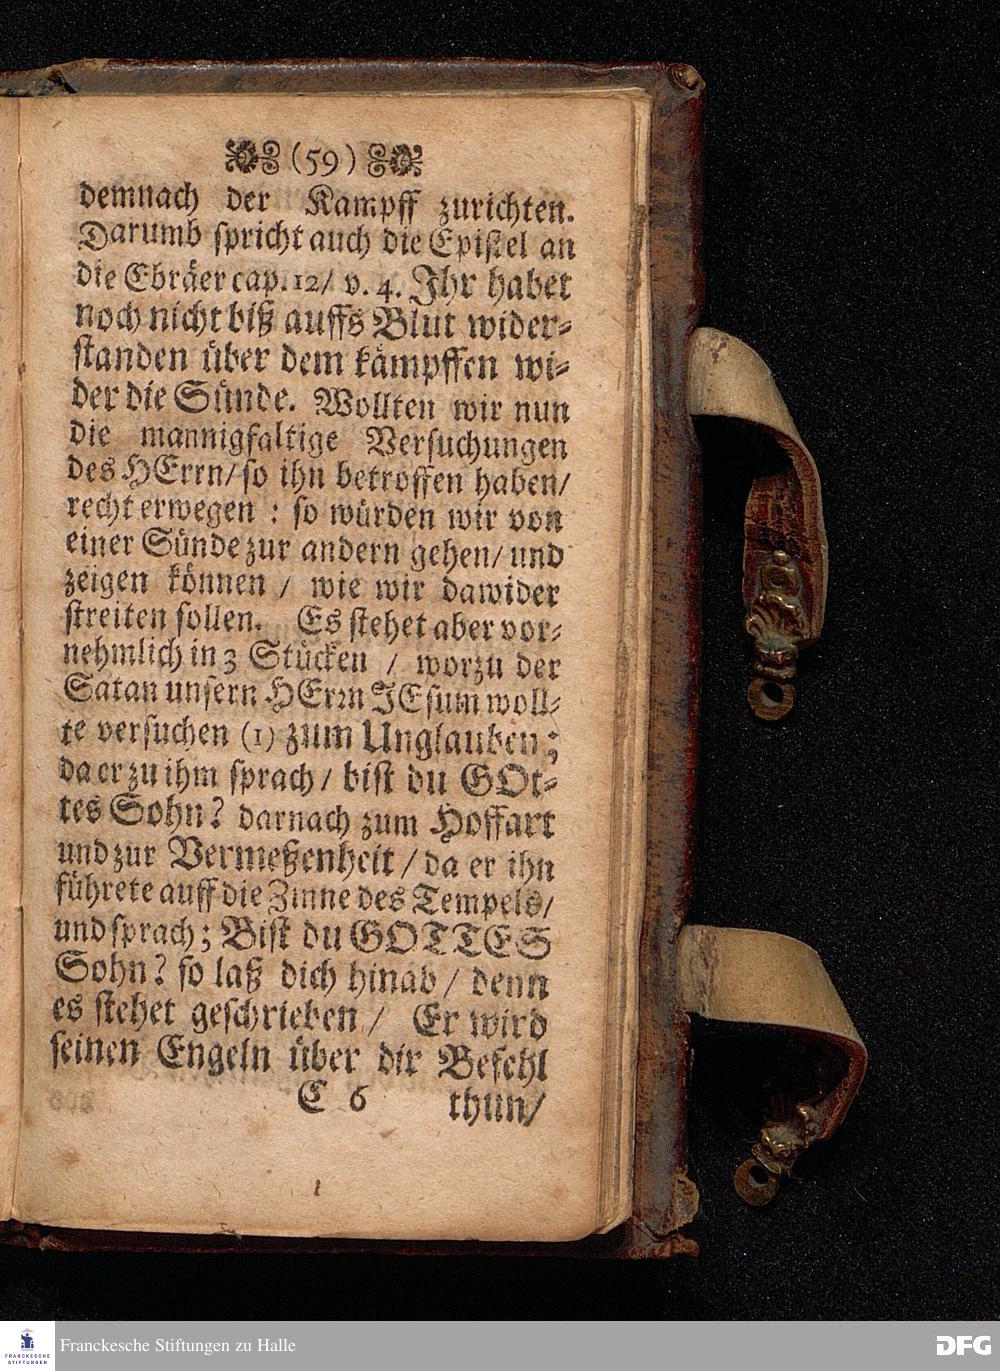 (59)
demnach der Kampff zurichten.
Darumb spricht auch die Epistel an
die Ebräer cap. 12/ v. 4. Ihr habet
noch nicht biß auffs Blut wider-
standen über dem kämpffen wi-
der die Sünde. Wollten wir nun
die mannigfaltige Versuchungen
des HErrn/ so ihn betroffen haben/
recht erwegen : so würden wir von
einer Sünde zur andern gehen/ und
zeigen können / wie wir dawider
streiten sollen. Es stehet aber vor-
nehmlich in 3 Stücken / worzu der
Satan unsern HErrn JEsum woll-
te versuchen (1) zum Unglauben;
da er zu ihm sprach/ bist du GOt-
tes Sohn? darnach zum Hoffart
und zur Vermeßenheit / da er ihn
führete auff die Zinne des Tempels/
und sprach; Bist du GOTTES
Sohn? so laß dich hinab / denn
es stehet geschrieben / Er wird
seinen Engeln über dir Befehl
C 6 thun/
FRANCKESCHE STIFTUNGEN
Franckesche Stiftungen zu Halle
DFG